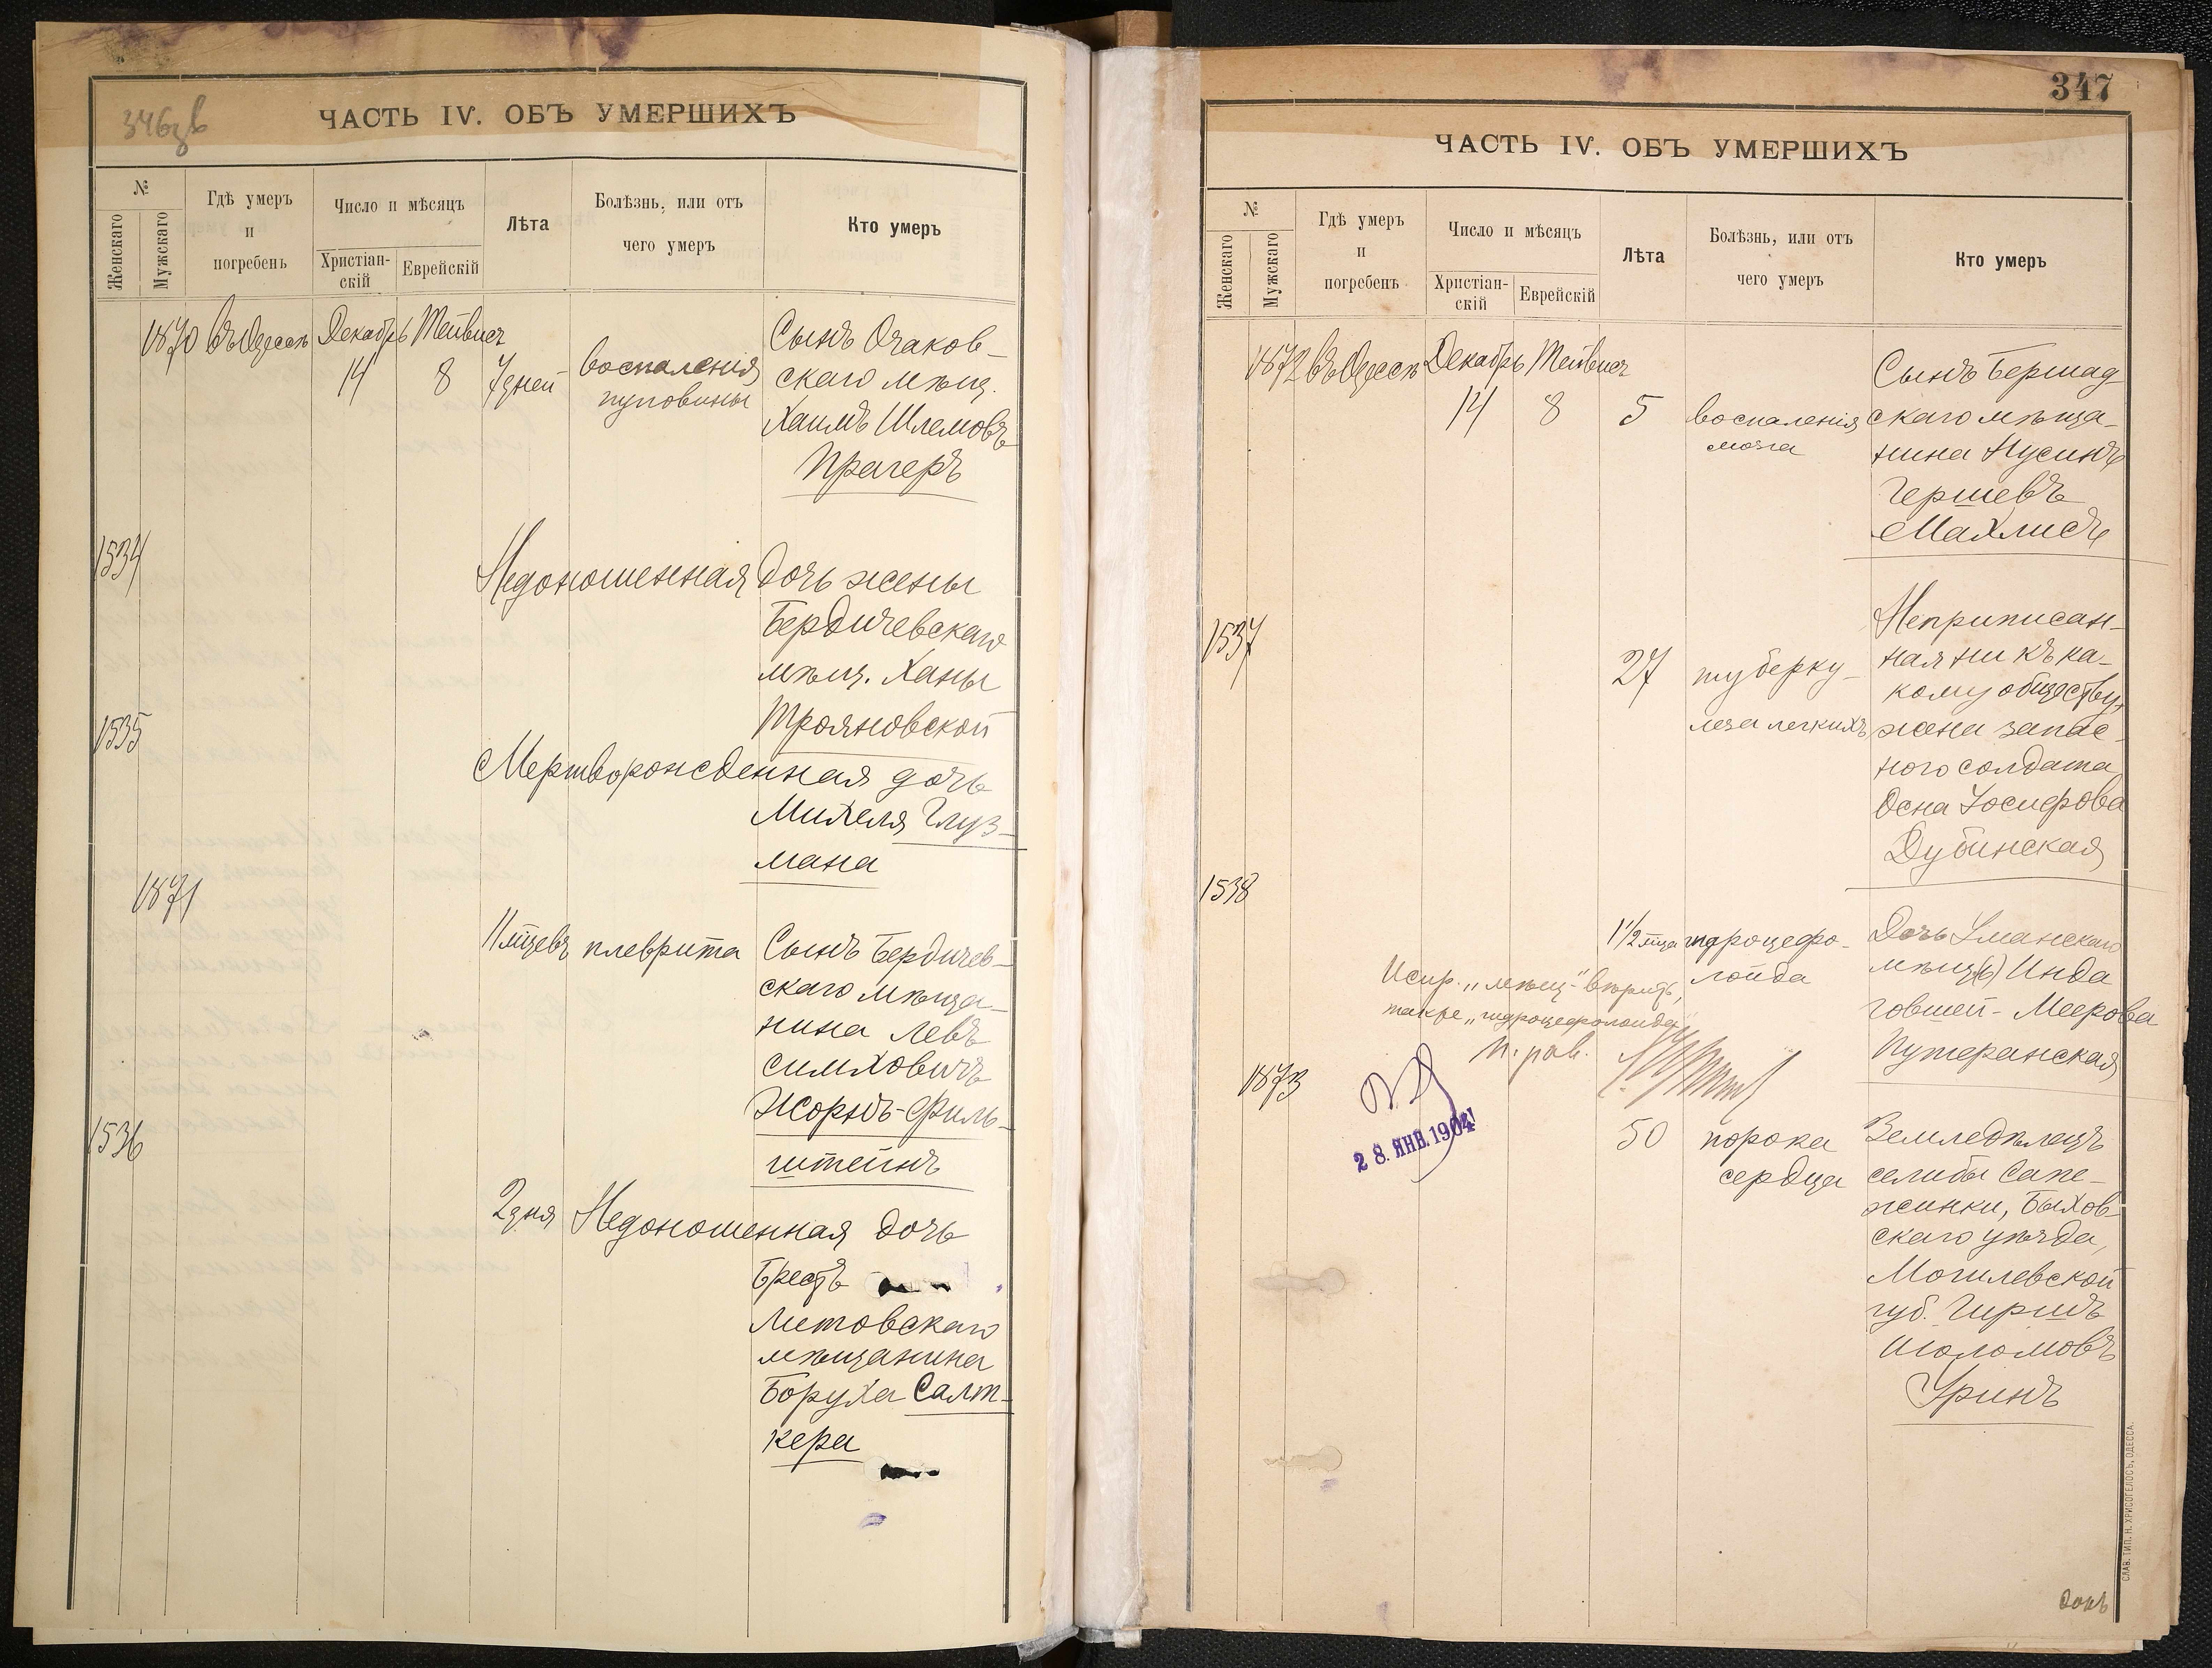 346зв
ЧАСТЬ IV. ОБЪ УМЕРШИХЪ
№
Женскаго
Мужскаго
Гдѣ умеръ
и
погребенъ
Число и мѣсяцъ
Христіан-
скій
Еврейскій
Лѣта
Болѣзнь, или отъ
чего умеръ
Кто умеръ
1870 въ Одессѣ Декабрь Тейвисъ
14 8 7 дней
воспаленія
пуповины
Сынъ Очаков-
скаго мѣщ.
Хаимъ Шлемовъ
Прагеръ
1534
Недоношенная дочь жены
Бердичевскаго
мѣщ. Ханы
Трояновской
1535
Мертворожденная дочь
Михеля Глуз-
мана
1871
11 мцевъ плеврита Сынъ Бердичев-
скаго мѣща-
нина Левъ
Симховичъ
Жорнъ-Филь-
штейнъ
1536
2 дня Недоношенная дочь
Брестъ
Литовскаго
мѣщанина
Боруха Салт-
кера
347
ЧАСТЬ IV. ОБЪ УМЕРШИХЪ
№
Женскаго
Мужскаго
Гдѣ умеръ
и
погребенъ
Число и мѣсяцъ
Христіан-
скій
Еврейскій
Лѣта
Болѣзнь, или отъ
чего умеръ
Кто умеръ
1872 въ Одессѣ Декабрь Тейвисъ
14 8 5
воспаленія
мозга
Сынъ Бершад
скаго мѣща-
нина Нусинъ
Гершевъ
Махлисъ
1537
27 туберку-
леза легкихъ
Неприписан-
ная ни къ ка-
кому обществу,
жена запас-
ного солдата
Осна Іосифова
Дубинская
1538
1½ мца гидроцефо-
лоида
Дочь Уманскаго
мѣщ(ь) Инда
Говшей-Меерова
Путеранская
Испр. „мѣщ-" вѣрить,
также „гидроцефолоида"
п. рав.
28. ЯНВ. 1904
1873
50 порока
сердца
Земледѣлецъ
селибы Сапе-
жинки, Быхов-
скаго уѣзда,
Могилевской
губ. Гиршъ
Шоломовъ
Уринъ
СЛАВ. ТИП. Н. ХРИСОГЕЛОСЪ, ОДЕССА.